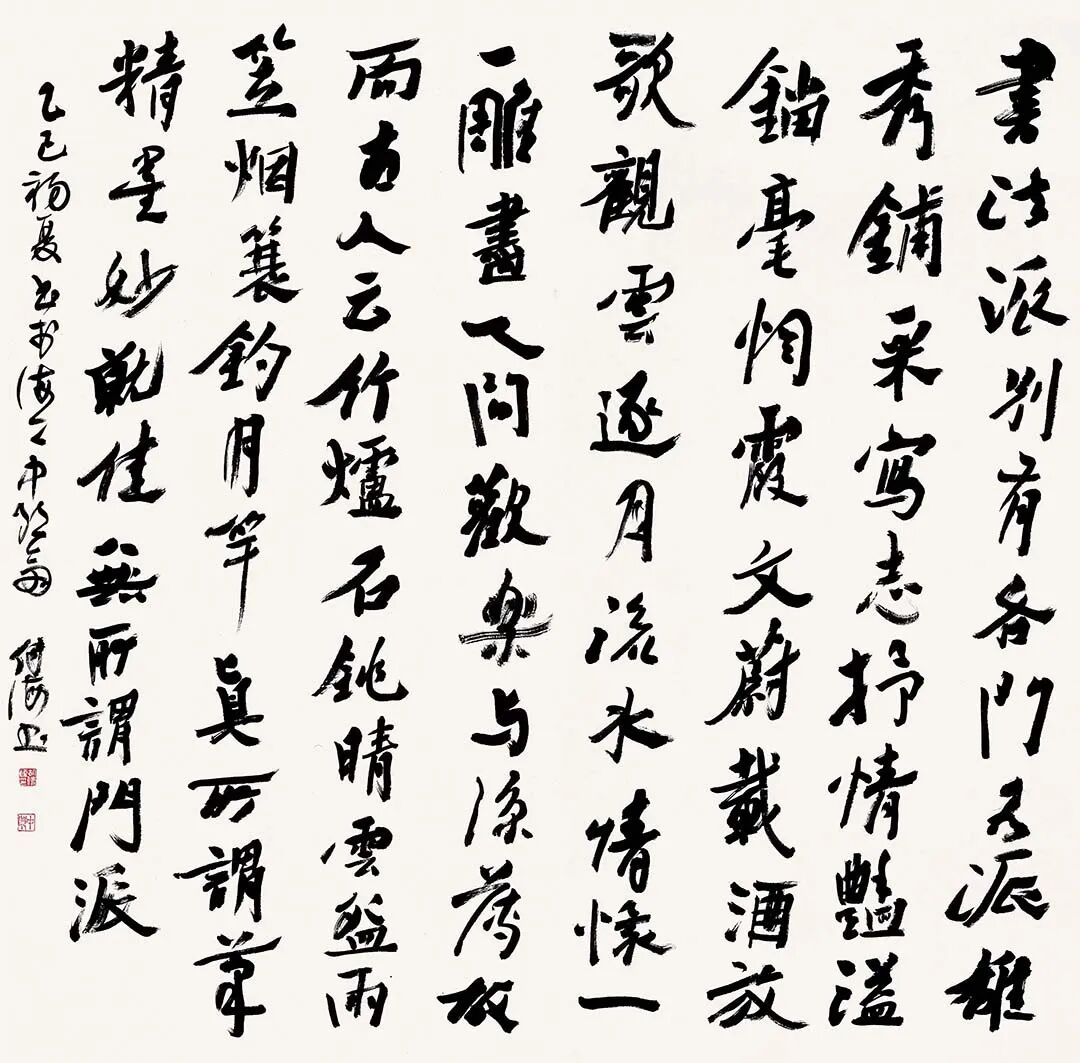 書法派別有各門名派雄
秀鋪采寫志抒情豔溢
錙毫惘霞文蔚載酒放
歌觀雲逐月流水情懷一
雕畫又問歡樂与涼薄故
而古人云竹爐石銚晴雲盌雨
笠烟蓑釣月竿真所謂筆
精墨妙就佳無所謂門派
乙巳初夏書於海